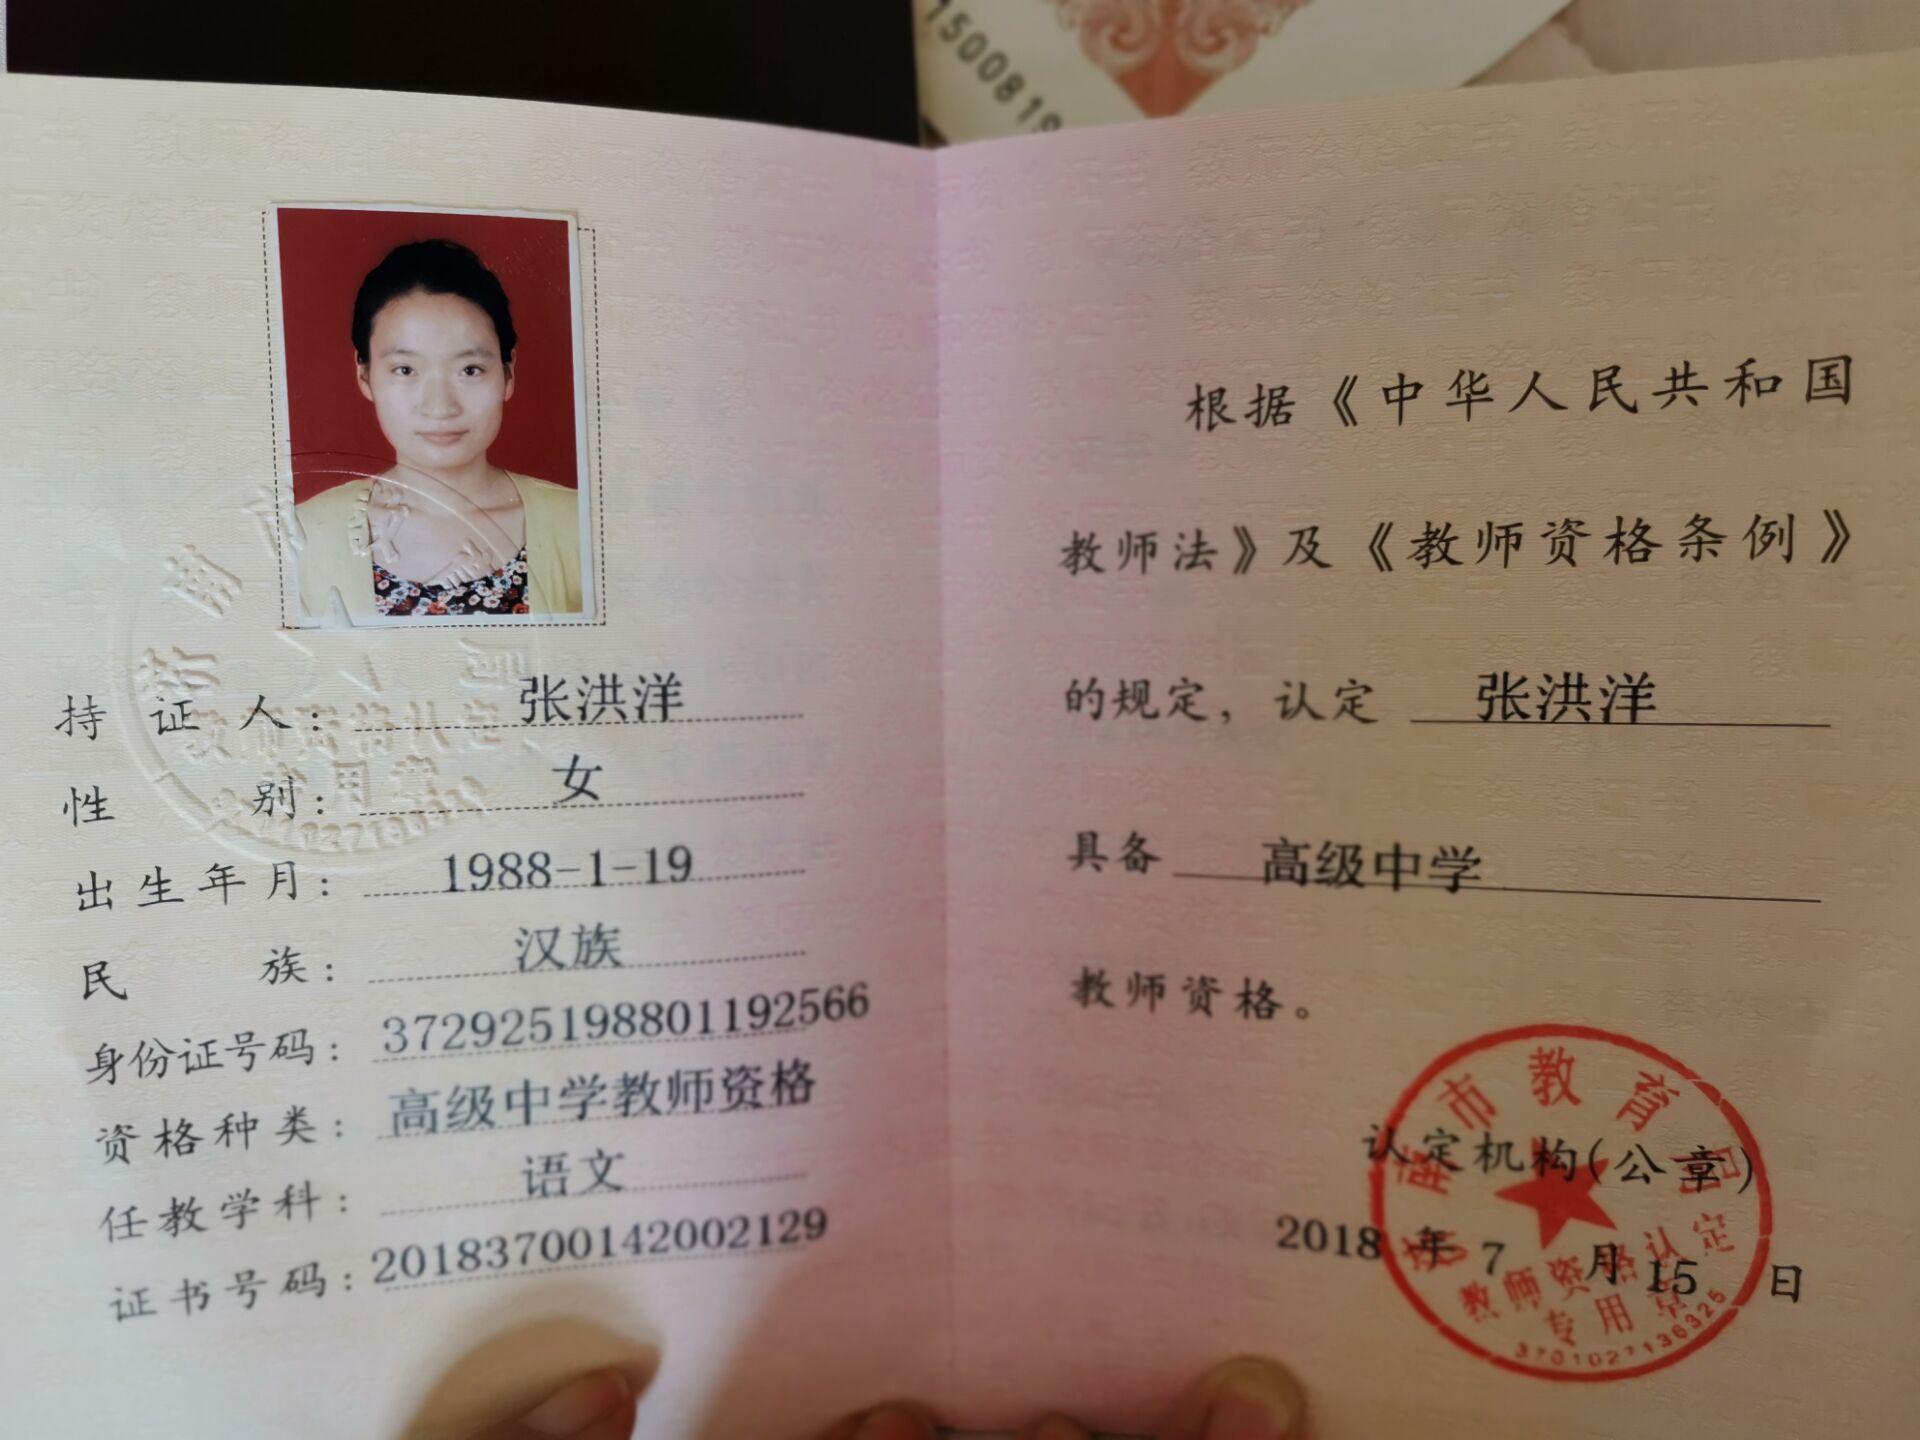 1500819
持证人：张洪洋
性别：女
出生年月：1988-1-19
民族：汉族
身份证号码：372925198801192566
资格种类：高级中学教师资格
任教学科：语文
证书号码：20183700142002129
根据《中华人民共和国
教师法》及《教师资格条例》
的规定，认定 张洪洋
具备 高级中学
教师资格。
认定机构(公章)
2018 年 7 月 15 日
济南市教育局
教师资格认定
专用章
3701027136325